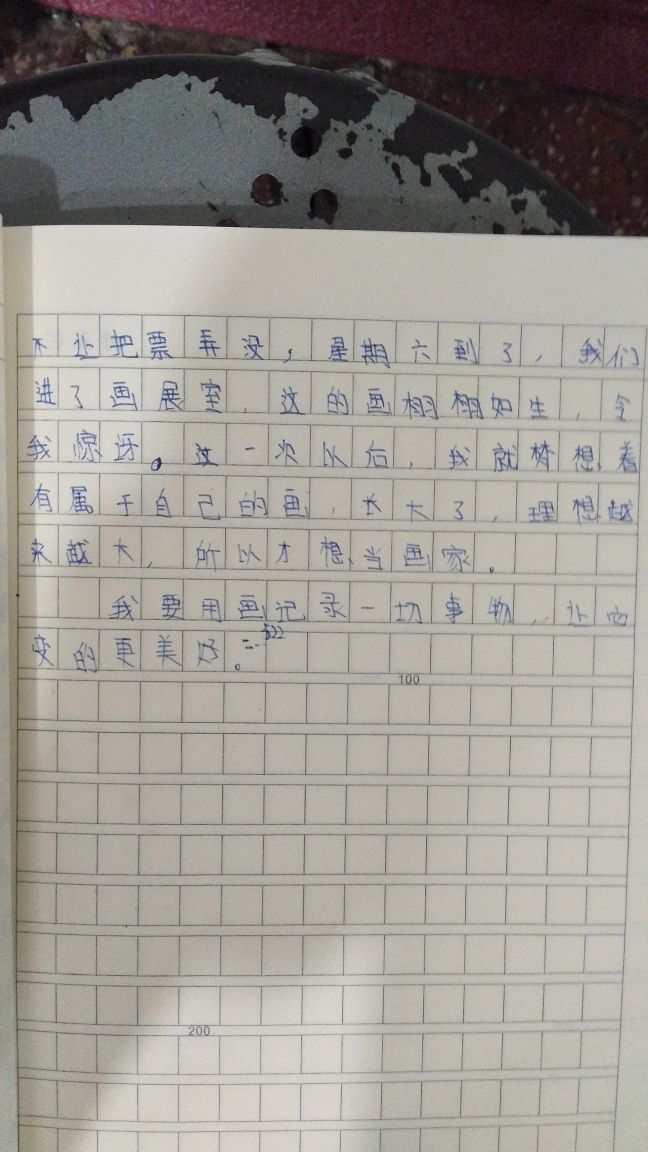 不让把票弄没，星期六到了，我们
进了画展室，这的画栩栩如生，令
我惊讶。这一次以后，我就梦想着
有属于自己的画，长大了，理想越
来越大，所以才想当画家。
我要用画记录一切事物，让它
变的更美好。
100
200